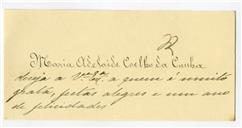 R
Maria Adelaide Coelho da Cunha
deseja a V. Exª. a quem é muito
grata, festas alegres e um ano
de felicidades